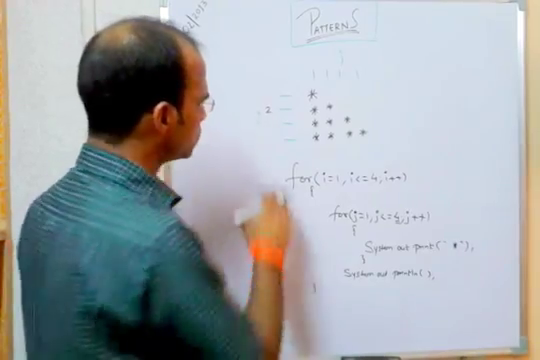 02/2013
PATTERNS
*
2
* *
* * *
* * * *
for(i=1, i<=4, i++)
{
for(j=1, j<=i, j++)
{
System out print(" *"),
}
System out println( ),
}